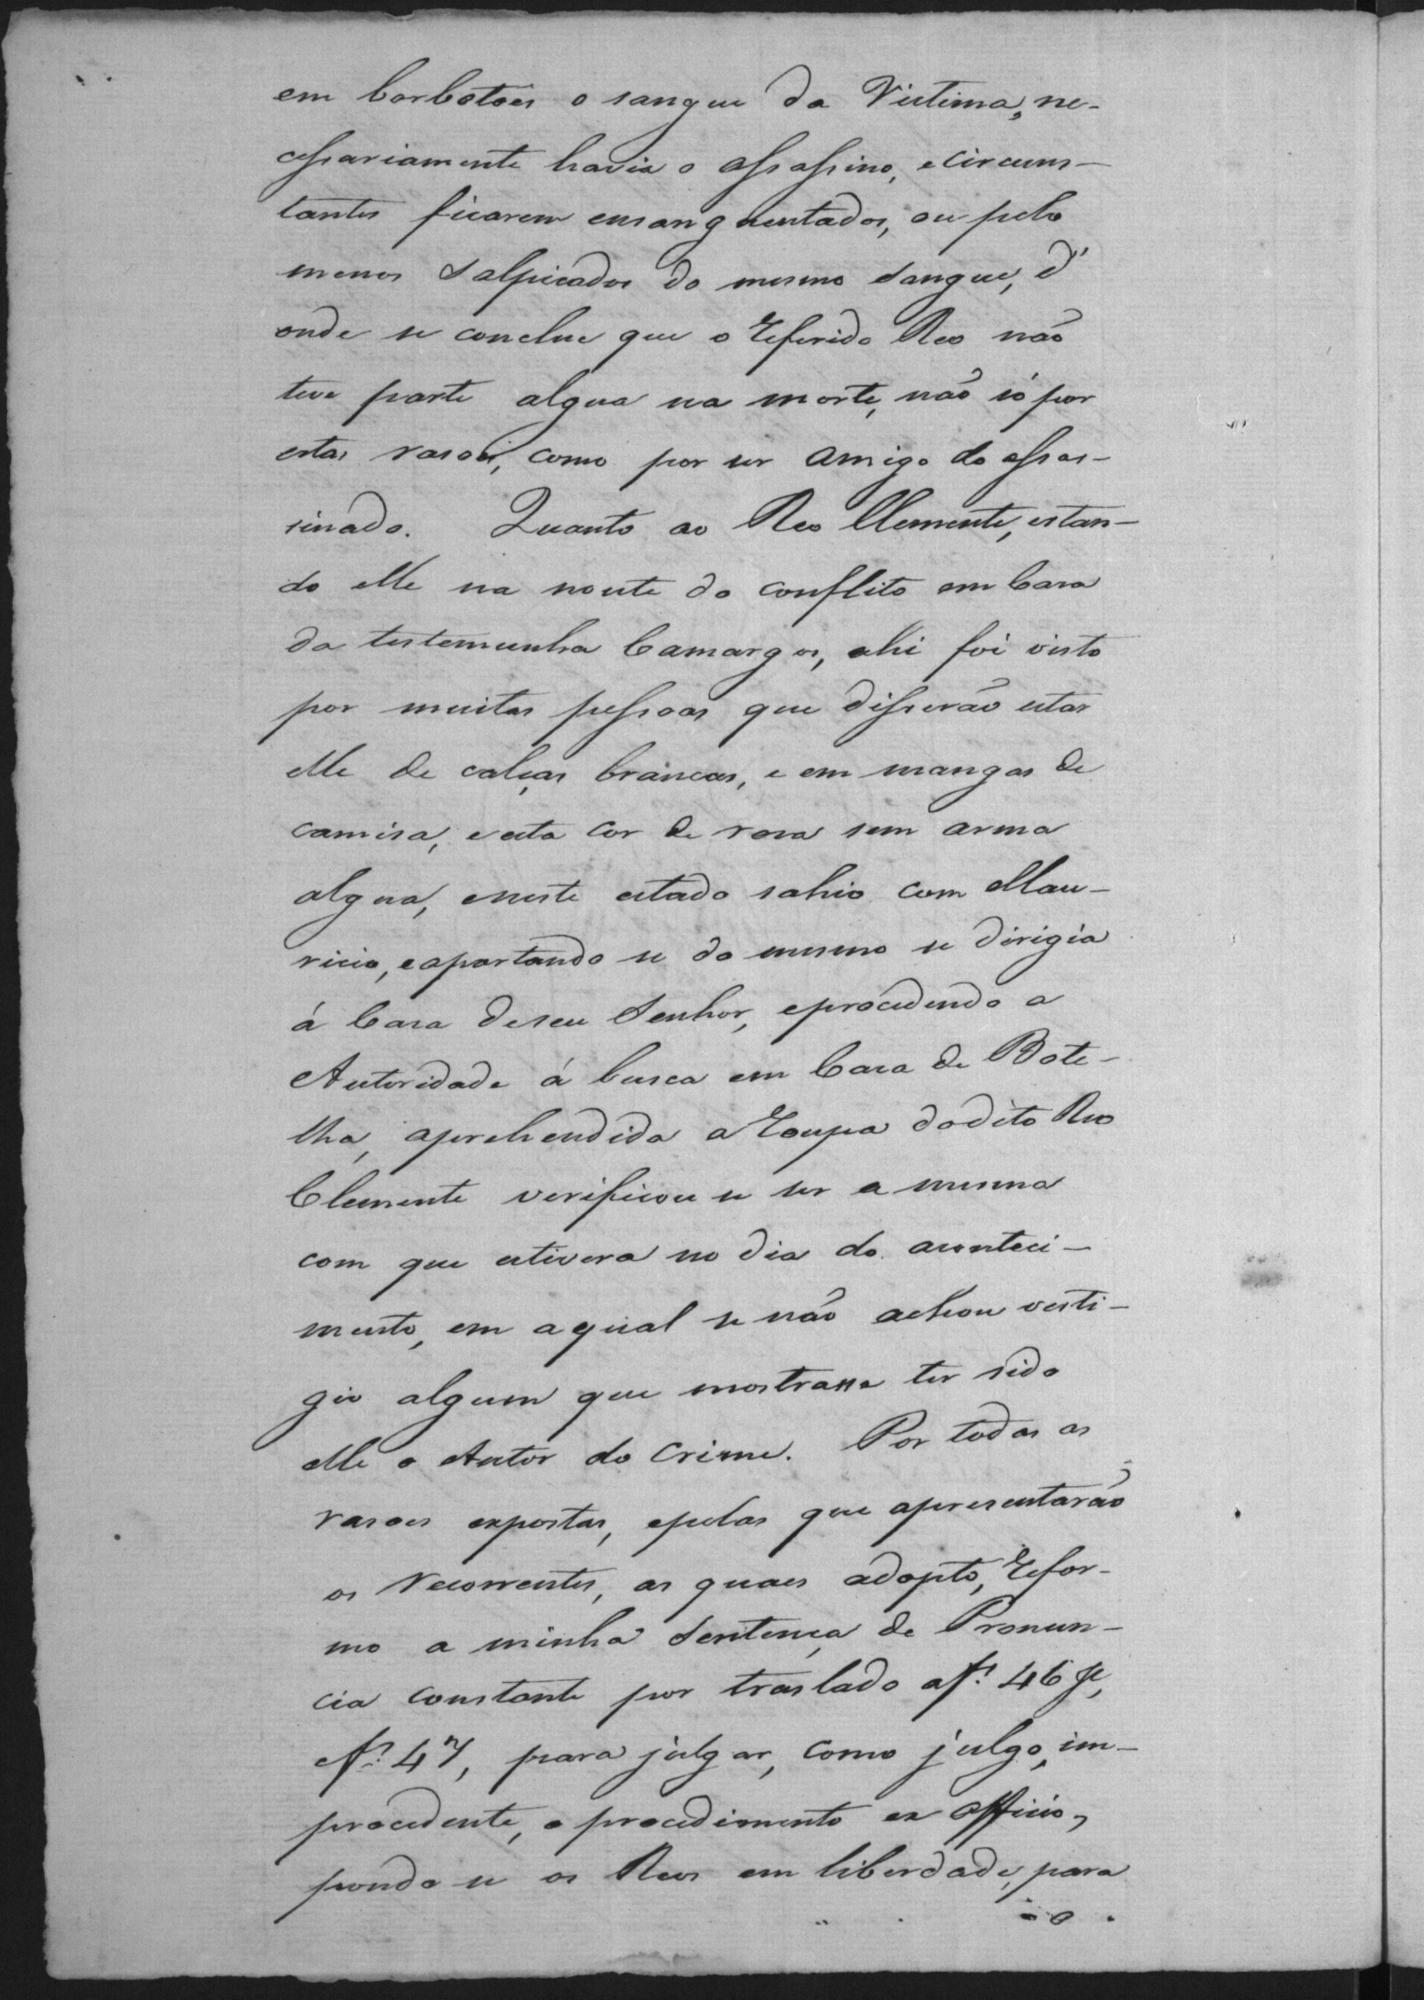 em borbotoēs o sangue da Victima, ne-
cessariamente havia o assassino, e circuns-
tantes ficarem ensanguentados, ou pelo
menos salpicados do mesmo sangue, d'
onde se conclue que o referido Reo não
teve parte algua na morte, não só por
estas rasoēs, como por ser amigo do assas-
sinado. Quanto ao Reo Clemente, estan-
do elle na noute do conflito em Casa
da testemunha Camargos, ahi foi visto
por muitas pessoas que disserão estar
elle de calças brancas, e em mangas de
camisa, e esta cor de rosa sem arma
algua, e neste estado sahio com Mau-
ricio, e apartando se do mesmo se dirigia
á Casa de seu Senhor, e procedendo a
Autoridade á busca em Casa de Bote-
lha, aprehendida a roupa do dito Reo
Clemente verificou se ser a mesma
com que estivera no dia do aconteci-
mento, em a qual se não achou vesti-
gio algum que mostrasse ter sido
elle o Autor do Crime. Por todas as
rasoes expostas, e pelas que apresentarão
os recorrentes, as quaes adopto, refor-
mo a minha Sentença de Pronun-
cia constante por traslado a fs. 46
e fs. 47, para julgar, como julgo, im-
procedente, o procedimento ex officio,
pondo se os Reos em liberdade, para